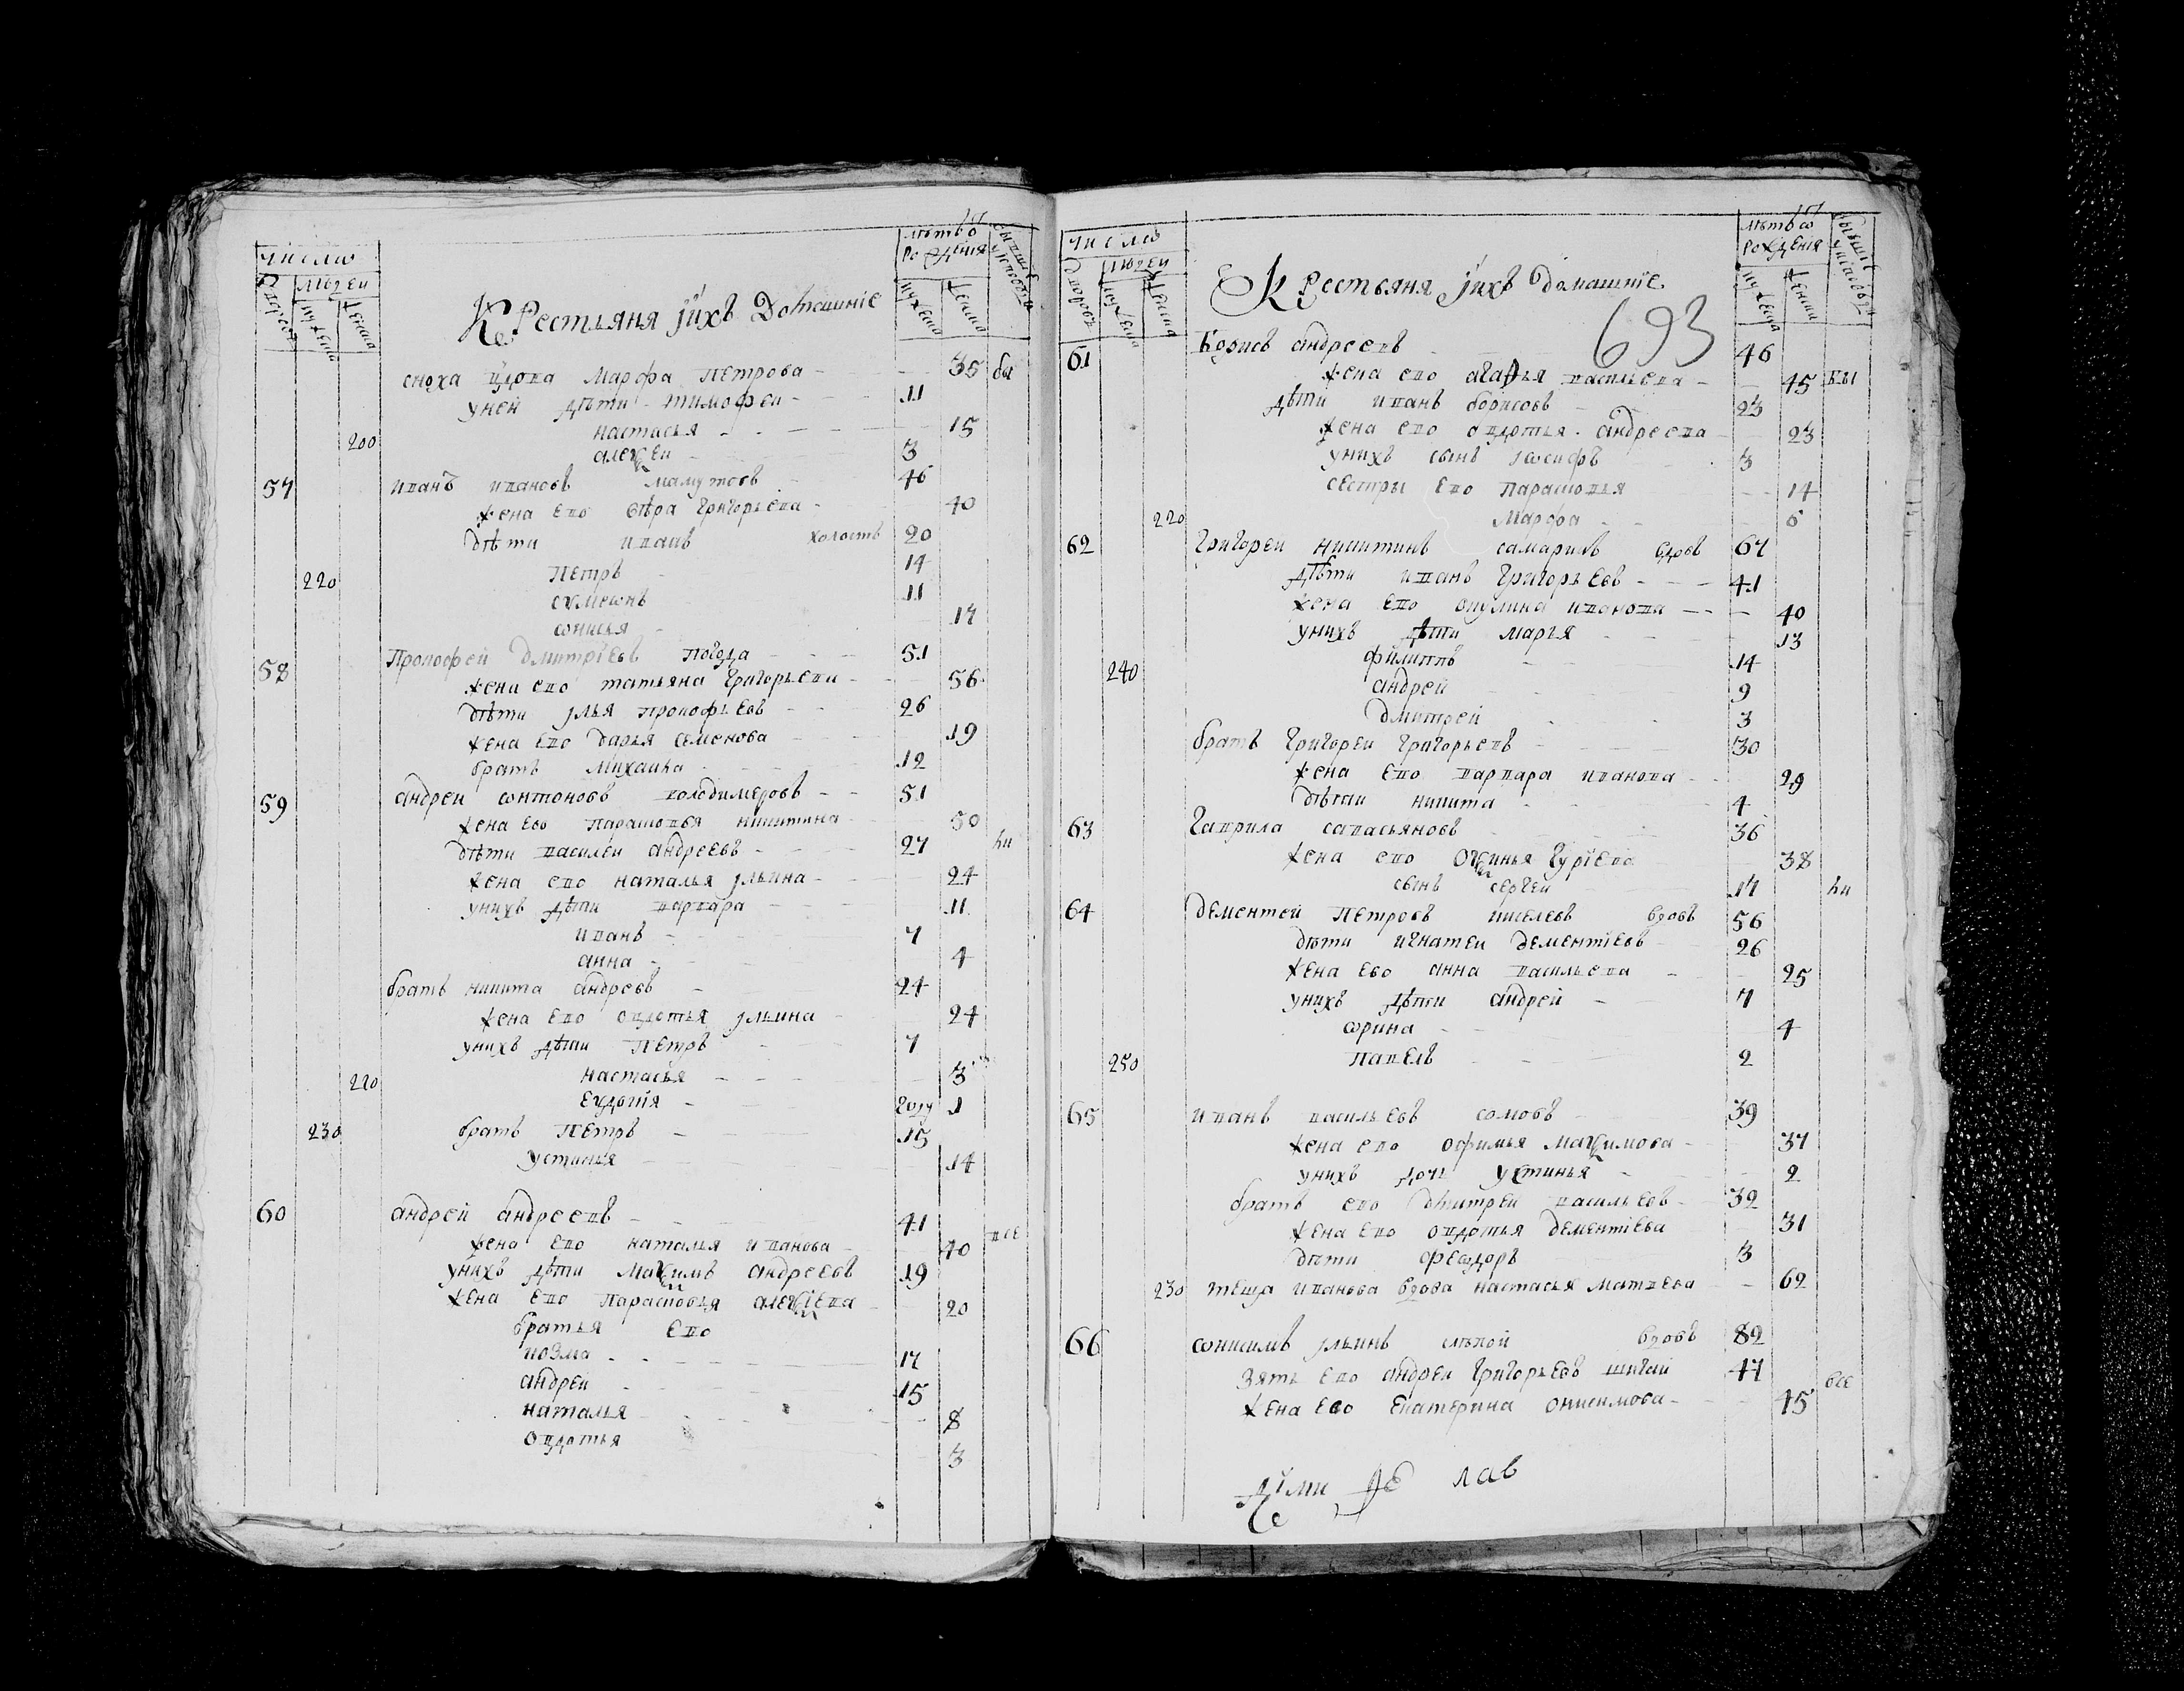 число
дворовъ
людеи
мужеска
женска
Крестьяня iихъ Домашнiе
лѣтъ ѿ рожденiя
мужеска
женска
сноха вдова Марфа Петрова 35 бы
унеи дѣти тимофеи 11
настасья 15
200 алеѯеи 3
57 иванъ ивановъ мамутовъ 46
жена ево вѣра григорьева 40
дѣти иванъ холостъ 20
220 Петръ 14
сѵмеѡнъ 11
ѡнисья 17
58 Прокофей дмитрiевъ погода 51
жена ево татьяна григорьева 56
дѣти iлья прокофьевъ 26
жена ево дарья семенова 19
братъ михаила 12
59 андреи ѡнтоновъ володимеровъ 51
жена ево парасковья никитина 50
дѣти василеи андреевъ 27 ни
жена ево наталья iльина 24
унихъ дѣти варвара 11
иванъ 7
анна 4
братъ никита андреевъ 24
жена ево овдотья iльина 24
унихъ дѣти Петръ 7
210 настасья 3
евдокiя году 1
230 братъ Петръ 15
устинья 14
60 андрей андреевъ 41
жена ево наталья иванова 40 все
унихъ дѣти маѯимъ андреевъ 19
жена ево парасковья алеѯiева 20
братья ево
козма 17
андреи 15
наталья 8
овдотья 3
число
дворовъ
людеи
мужеска
женска
Крестьяня iихъ домашнiе
лѣтъ ѿ рожденiя
мужеска
женска
693
61 Борисъ андреевъ 46
жена ево агафья васильева 45 бы
дѣти иванъ борисовъ 23
жена ево овдотья андреева 23
унихъ сынъ iѡсифъ 3
сестры ево парасковья 14
220 Марфа
62 григореи никитинъ самаринъ вдовъ 67
дѣти иванъ григорьевъ 41
жена ево окулина иванова 40
унихъ дѣти марья 13
240 филиппъ 14
андрей 9
дмитрей 3
братъ григореи григорьевъ 30
жена ево варвара иванова 29
дѣти никита 4
63 гаврила савасьяновъ 36
жена ево оѯинья гурiева 38
сынъ сергеи 17 ни
64 дементей петровъ киселевъ вдовъ 56
дѣти игнатеи дементiевъ 26
жена ево анна васильева 25
унихъ дѣти андрей 7
ѡрина 4
250 павелъ 2
65 иванъ васильевъ сомовъ 39
жена ево офимья маѯимова 37
унихъ дочь устинья 2
братъ ево дмитреи васильевъ 32
жена ево овдотья дементiева 31
дѣти феѡдоръ 3
230 теща иванова вдова настасья матвева 62
66 ѡнисимъ iльинъ слѣпой вдовъ 82
зять ево андреи григорьевъ шигай 47 все
жена ево екатерина онисимова 45